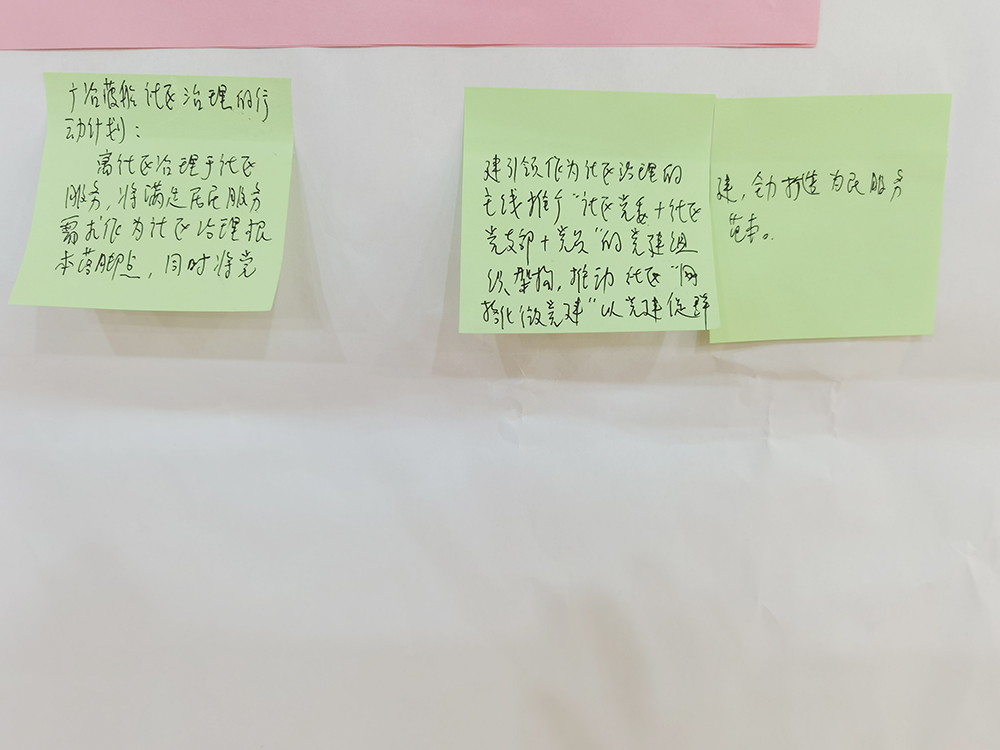 社区治理的行
动计划：
寓社区治理于社区
服务，将满足居民服务
需求作为社区治理根
本落脚点，同时将党
建引领作为社区治理的
主线推广“社区党委+社区
党支部+党员”的党建组
织架构，推动社区“网
格化微党建”以党建促群
建，全力打造为民服务